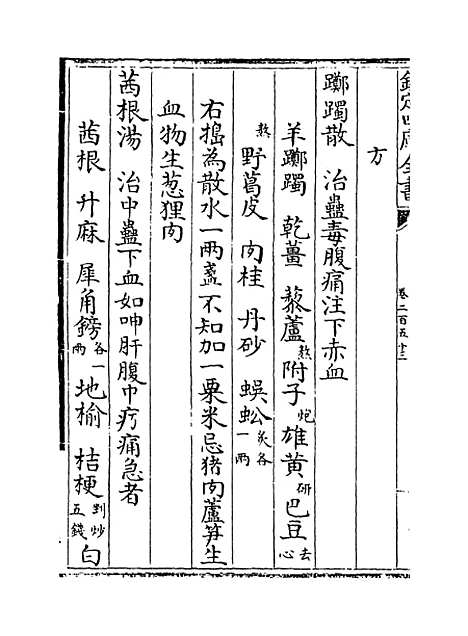 欽定四庫全書
卷二百五十三
方
躑躅散 治蠱毒腹痛注下赤血
羊躑躅 乾薑 藜蘆熬 附子炮 雄黄研 巴豆去心
熬 野葛皮 肉桂 丹砂 蜈蚣炙各一兩
右搗為散水一兩盞不知加一粟米忌猪肉蘆笋生
血物生葱狸肉
茜根湯 治中蠱下血如呷肝腹巾疞痛急者
茜根 升麻 犀角鎊各一兩 地榆 桔梗剉炒五錢 白